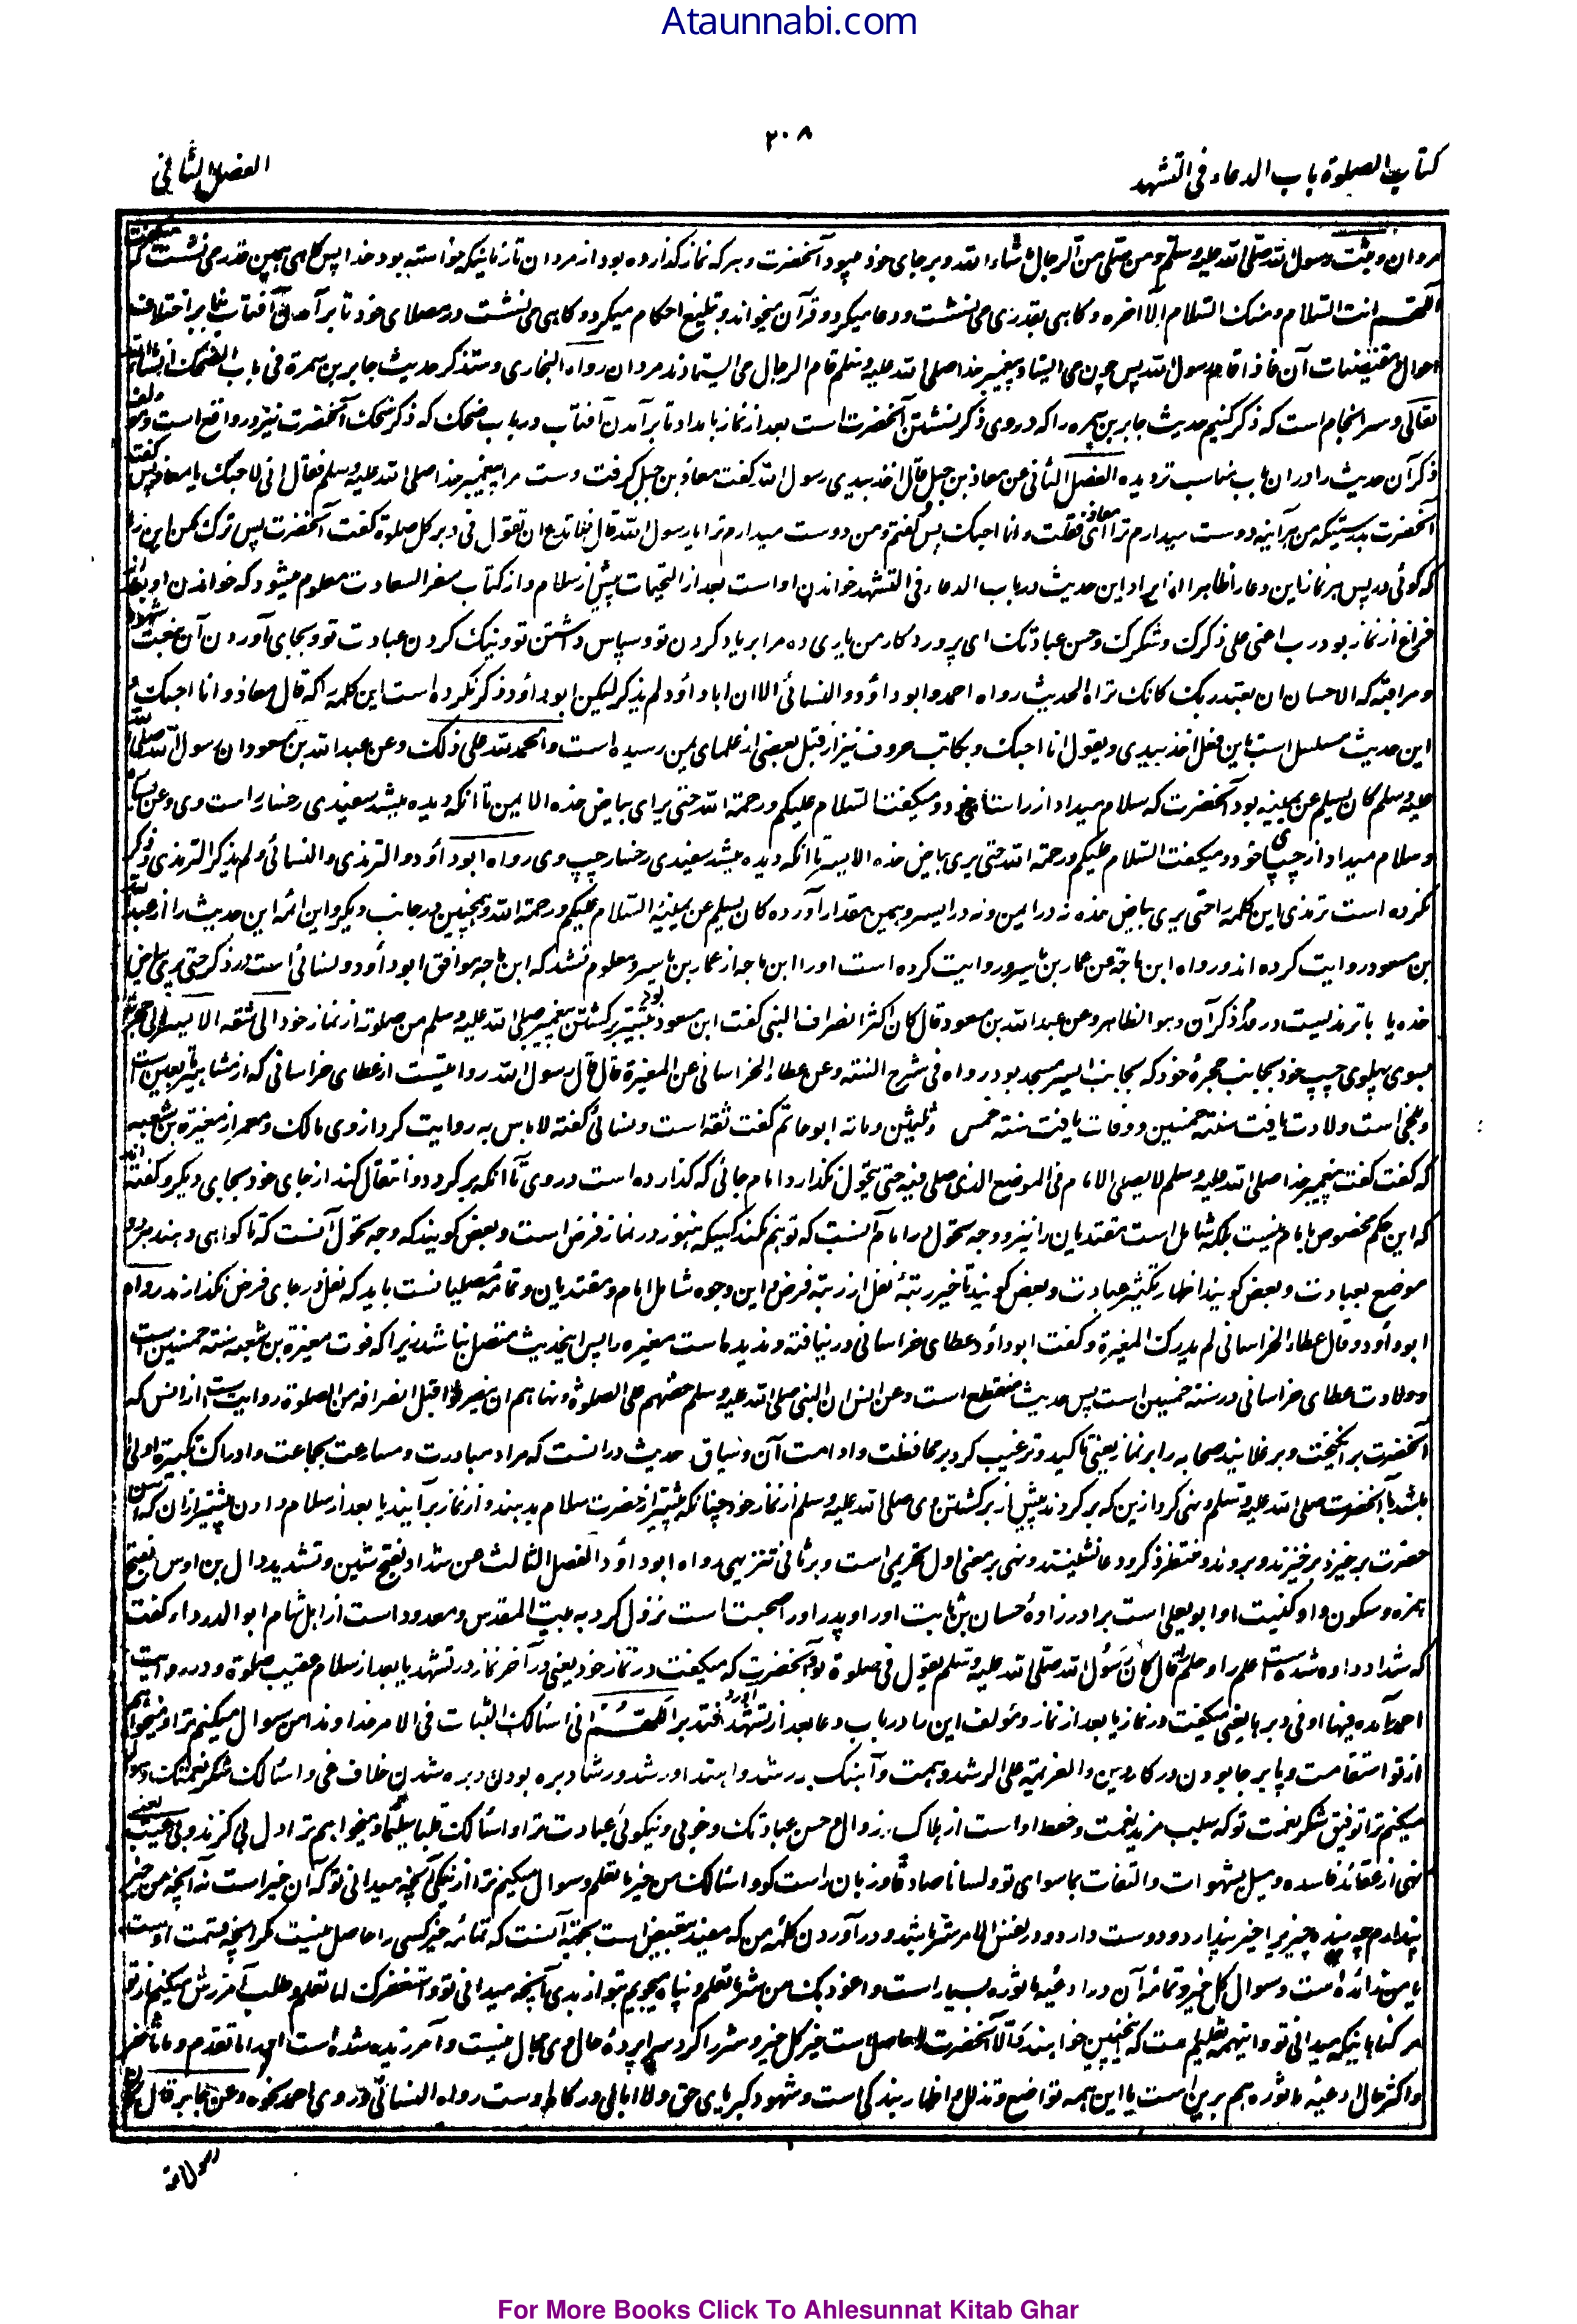 Ataunnabi.com
۲۰۸
کتاب الصلوة باب الدعاء فی التشهد
الفصل الثانی
مردان وثبت رسول الله صلی الله علیه وسلم ومن صلی من الرجال ما شاء الله وبر جای خود میبود آنحضرت وهر که نماز گذارده بود از مردان تا زمانیکه خواسته بود خدا پس گاهی همین قدر می نشست که میگفت
اللهم انت السلام ومنک السلام الا آخره وگاهی بقدری می نشست ودعا میکرد وقرآن میخواند وتبلیغ احکام میکرد وگاهی می نشست در مصلای خود تا برآمدن آفتاب بنا بر اختلاف
احوال ومقتضیات آن فاذا قام رسول الله پس چون می ایستاد پیغمبر خدا صلی الله علیه وسلم قام الرجال می ایستادند مردان رواه البخاری وسنذکر حدیث جابر بن سمرة فی باب الضحک انشاء الله
تعالی وسر انجام است که ذکر کنیم حدیث جابر بن سمره را که در وی ذکر نشستن آنحضرت است بعد از نماز بامداد تا برآمدن آفتاب در باب ضحک که ذکر ضحک آنحضرت نیز در و واقع است
ذکر آن حدیث را در ان باب مناسب تر دیده الفصل الثانی عن معاذ بن جبل قال اخذ بیدی رسول الله گفت معاذ بن جبل گرفت دست مرا پیغمبر خدا صلی الله علیه وسلم فقال انی لاحبک یا معاذ پس گفت
آنحضرت بدرستیکه من هر آئینه دوست میدارم ترا ای معاذ فقلت وانا احبک پس گفتم ومن دوست میدارم ترا یا رسول الله قال فلا تدع ان تقول فی دبر کل صلوة گفت آنحضرت پس ترک مکن این را
که گوئی در پس هر نماز این دعا را ظاهرا از ایراد این حدیث در باب الدعاء فی التشهد خواندن او است بعد از التحیات پیش از سلام واز کتاب سفر السعادت معلوم میشود که خواندن او بعد
فراغ از نماز بود رب اعنی علی ذکرک وشکرک وحسن عبادتک ای پروردگار من یاری ده مرا بر یاد کردن تو وسپاس داشتن تو ونیک کردن عبادت تو وبجای آوردن آن بنعت شهود
ومراقبه که الاحسان ان تعبد ربک کانک تراه الحدیث رواه احمد وابو داؤد والنسائی الا ان ابا داؤد لم یذکر لیکن ابو داؤد ذکر نکرده است این کلمه را که قال معاذ وانا احبک
این حدیث مسلسل است باین فعل اخذ بیدی ویقول انا احبک وبکاتب حروف نیز از قبل بعضی از علمای یمن رسیده است والحمد لله علی ذلک وعن عبد الله بن مسعود ان رسول الله صلی الله
علیه وسلم کان یسلم عن یمینه بود آنحضرت که سلام میداد از راستای خود ومیگفت السلام علیکم ورحمة الله حتی یری بیاض خده الایمن تا آنکه دیده میشد سفیدی رخساره راست وی وعن یساره
وسلام میداد از چپ خود ومیگفت السلام علیکم ورحمة الله حتی یری بیاض خده الایسر تا آنکه دیده میشد سفیدی رخسار چپ وی رواه ابو داؤد والترمذی والنسائی ولم یذکر الترمذی وذکر
نکرده است ترمذی این کلمه را حتی یری بیاض خده نه در ایمن ونه در ایسر وهمین مقدار آورده کان یسلم عن یمینه السلام علیکم ورحمة الله وهمچنین در جانب دیگر واین ائمه این حدیث را از عبد الله
بن مسعود روایت کرده اند ورواه ابن ماجة عن عمار بن یاسر وروایت کرده است او را ابن ماجه از عمار بن یاسر ومعلوم نشد که ابن ماجه موافق ابو داؤد ونسائی است در ذکر حتی یری بیاض
خده یا با ترمذیست در عدم ذکر آن وهو الظاهر وعن عبد الله بن مسعود قال کان اکثر انصراف النبی گفت ابن مسعود بود بیشتر برگشتن پیغمبر صلی الله علیه وسلم من صلوته از نماز خود الی شقه الایسر الی حجرته
بسوی پهلوی چپ خود بجانب حجرۀ خود که بجانب ایسر مسجد بود رواه فی شرح السنة وعن عطاء الخراسانی عن المغیرة قال قال رسول الله روایتست از عطای خراسانی که از مشاهیر تابعین است
وبلخی است ولادت یافت سنه خمسین ووفات یافت سنه خمس وثلثین ومائة ابو حاتم گفت ثقه است ونسائی گفته لا باس به روایت کرد از وی مالک ومعمر از مغیره بن شعبه
که گفت گفت پیغمبر خدا صلی الله علیه وسلم لا یصلی الامام فی الموضع الذی صلی فیه حتی یتحول نگذارد امام جائی که گذارده است در وی تا آنکه برگردد وانتقال کند از جای خود بجای دیگر وگفته اند
که این حکم مخصوص بامام نیست بلکه شامل است مقتدیان را نیز ووجه تحول در امام آنست که توهم نکند کسیکه هنوز در نماز فرض است وبعض گویند که وجه تحول آنست که تا گواهی دهند هر دو
موضع بعبادت وبعض گویند اظهار تکثیر عبادت وبعض گویند تاخیر رتبۀ نفل از رتبه فرض واین وجوه شامل امام ومقتدیان وتمامه مصلیانست باید که نفل در جای فرض نگذارند رواه
ابو داؤد وقال عطاء الخراسانی لم یدرک المغیرة وگفت ابو داؤد عطای خراسانی در نیافته وندیده است مغیره را پس این حدیث متصل نباشد زیرا که فوت مغیرة بن شعبه سنه خمسین است
وولادت عطای خراسانی در سنه خمسین است پس حدیث منقطع است وعن انس ان النبی صلی الله علیه وسلم حضهم علی الصلوة ونهاهم ان ینصرفوا قبل انصرافه من الصلوة روایت است از انس که
آنحضرت برانگیخت وبر غلانید صحابه را بر نماز یعنی تاکید وترغیب کرد بر محافظت وادامت آن وسیاق حدیث در انست که مراد مبادرت ومسارعت بجماعت وادراک تکبیره اولی
باشد با آنحضرت صلی الله علیه وسلم ونهی کرد ازین که برگردند پیش از برگشتن وی صلی الله علیه وسلم از نماز خود چنانکه پیشتر از حضرت سلام بدهند واز نماز برآیند یا بعد از سلام دادن پیشتر از ان که آن
حضرت برخیزد برخیزند وبروند ومنتظر ذکر ودعا ننشینند ونهی بر معنی اول تحریمی است وبر ثانی تنزیهی رواه ابو داؤد الفصل الثالث عن شداد بفتح شین وتشدید دال بن اوس بفتح
همزه وسکون واو کنیت او ابو یعلی است برادر زادۀ حسان بن ثابت او را وپدر او را صحبت است نزول کرد به بیت المقدس ومعدود است از اهل شام ابو الدرداء گفت
که شداد داده شده است علم را وحلم را قال کان رسول الله صلی الله علیه وسلم یقول فی صلوة بود آنحضرت که میگفت در نماز خود یعنی در آخر نماز در تشهد یا بعد از سلام عقیب صلوة ودر روایت
احمد آمده فیها او فی دبرها یعنی میگفت در نماز یا بعد از نماز ومؤلف این را در باب دعا بعد از تشهد آورد فتدبر اللهم انی اسألک الثبات فی الامر خداوندا من سوال میکنم ترا ومیخواهم
از تو استقامت وپا بر جا بودن در کار دین والعزیمة علی الرشد وهمت وآهنگ بر رشد واهتدا ورشد ورشاد بره بودن وبره شدن خلاف غی واسألک شکر نعمتک وسوال
میکنم ترا توفیق شکر نعمت تو که سبب مزید نعمت وحفظ او است از هلاک وزوال وحسن عبادتک وخوبی ونیکوئی عبادت ترا واسألک قلبا سلیما ومیخواهم ترا دل بی گزند وبی عیب یعنی
تهی از عقائد فاسده ومیل بشهوات والتفات بما سوای تو ولسانا صادقا وزبان راست گو واسألک من خیر ما تعلم وسوال میکنم ترا از نیکی آنچه میدانی تو که آن خیر است نه آنچه من خیر
پندارم چه بنده چیزیرا خیر پندارد ودوست دارد ودر نفس الامر شر باشد ودر آوردن کلمه من که مفید تبعیض است بجهة آنست که تمامه خیر کسی را حاصل نیست مگر آنچه قسمت اوست
یا من زائده است وسوال کل خیر وتمامه آن در ادعیه ماثوره بسیار است واعوذ بک من شر ما تعلم وپناه میجویم بتو از بدی آنچه میدانی تو واستغفرک لما تعلم وطلب آمرزش میکنم از تو
هر گناهانیکه میدانی تو واینهمه تعلیم است که همچنین خوانند والا آنحضرت را حاصل است خیر کل خیر وشر را گرد سراپردۀ حال وی مجال نیست وآمرزیده شده است او را ما تقدم وما تاخر
واکثر حال ادعیه ماثوره هم برین است با این همه تواضع وتذلل واظهار بندگی است وشهود کبریای حق ولا ابالی درگاه اوست رواه النسائی وروی احمد نحوه وعن جابر قال کان
رسول الله
For More Books Click To Ahlesunnat Kitab Ghar